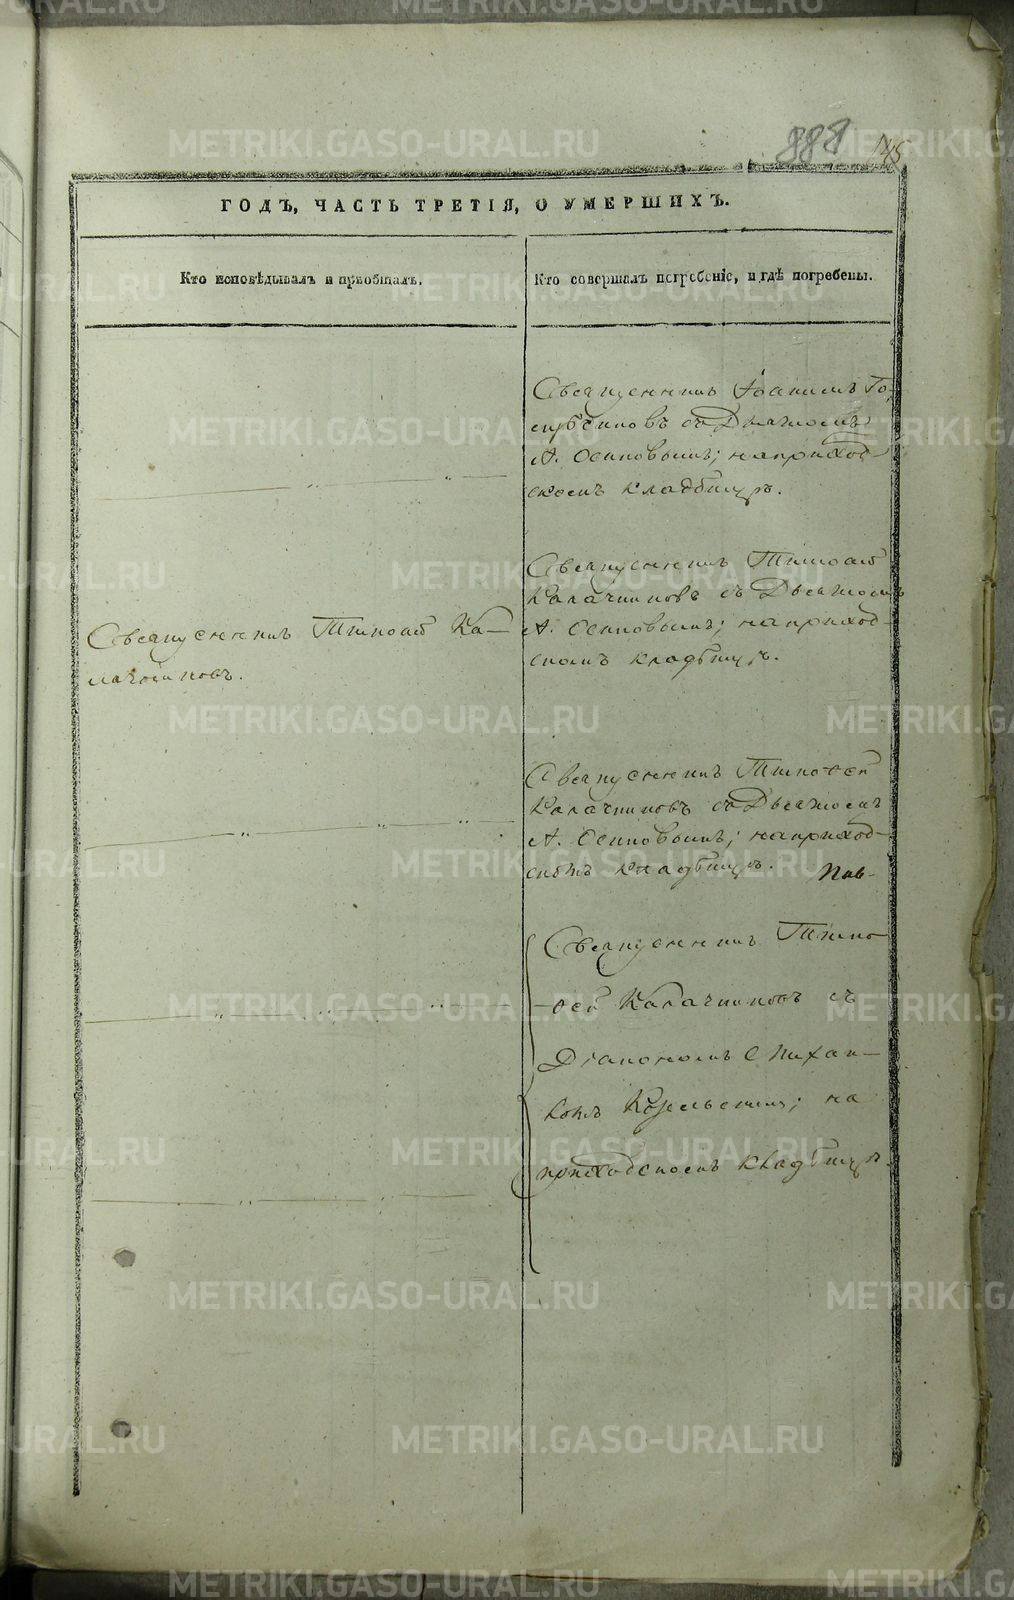 888
145
ГОДЪ, ЧАСТЬ ТРЕТІЯ, О УМЕРШИХЪ.
Кто исповѣдывалъ и пріобщалъ.
Кто совершалъ погребеніе, и гдѣ погребены.
Священникъ Іоаннъ
съ Дьячкомъ
А. Осиповымъ; на приход-
скомъ кладбищѣ.
Священникъ Тимоѳей Ка-
лачниковъ.
Священникъ Тимоѳей
Калачниковъ съ Дьячкомъ
А. Осиповымъ; на приход-
скомъ кладбищѣ.
Священникъ Тимоѳей
Калачниковъ съ Дьячкомъ
А. Осиповымъ; на приход-
скомъ кладбищѣ.
Священникъ Тимо-
ѳей Калачниковъ съ
Діакономъ
на
приходскомъ кладбищѣ.
METRIKI.GASO-URAL.RU